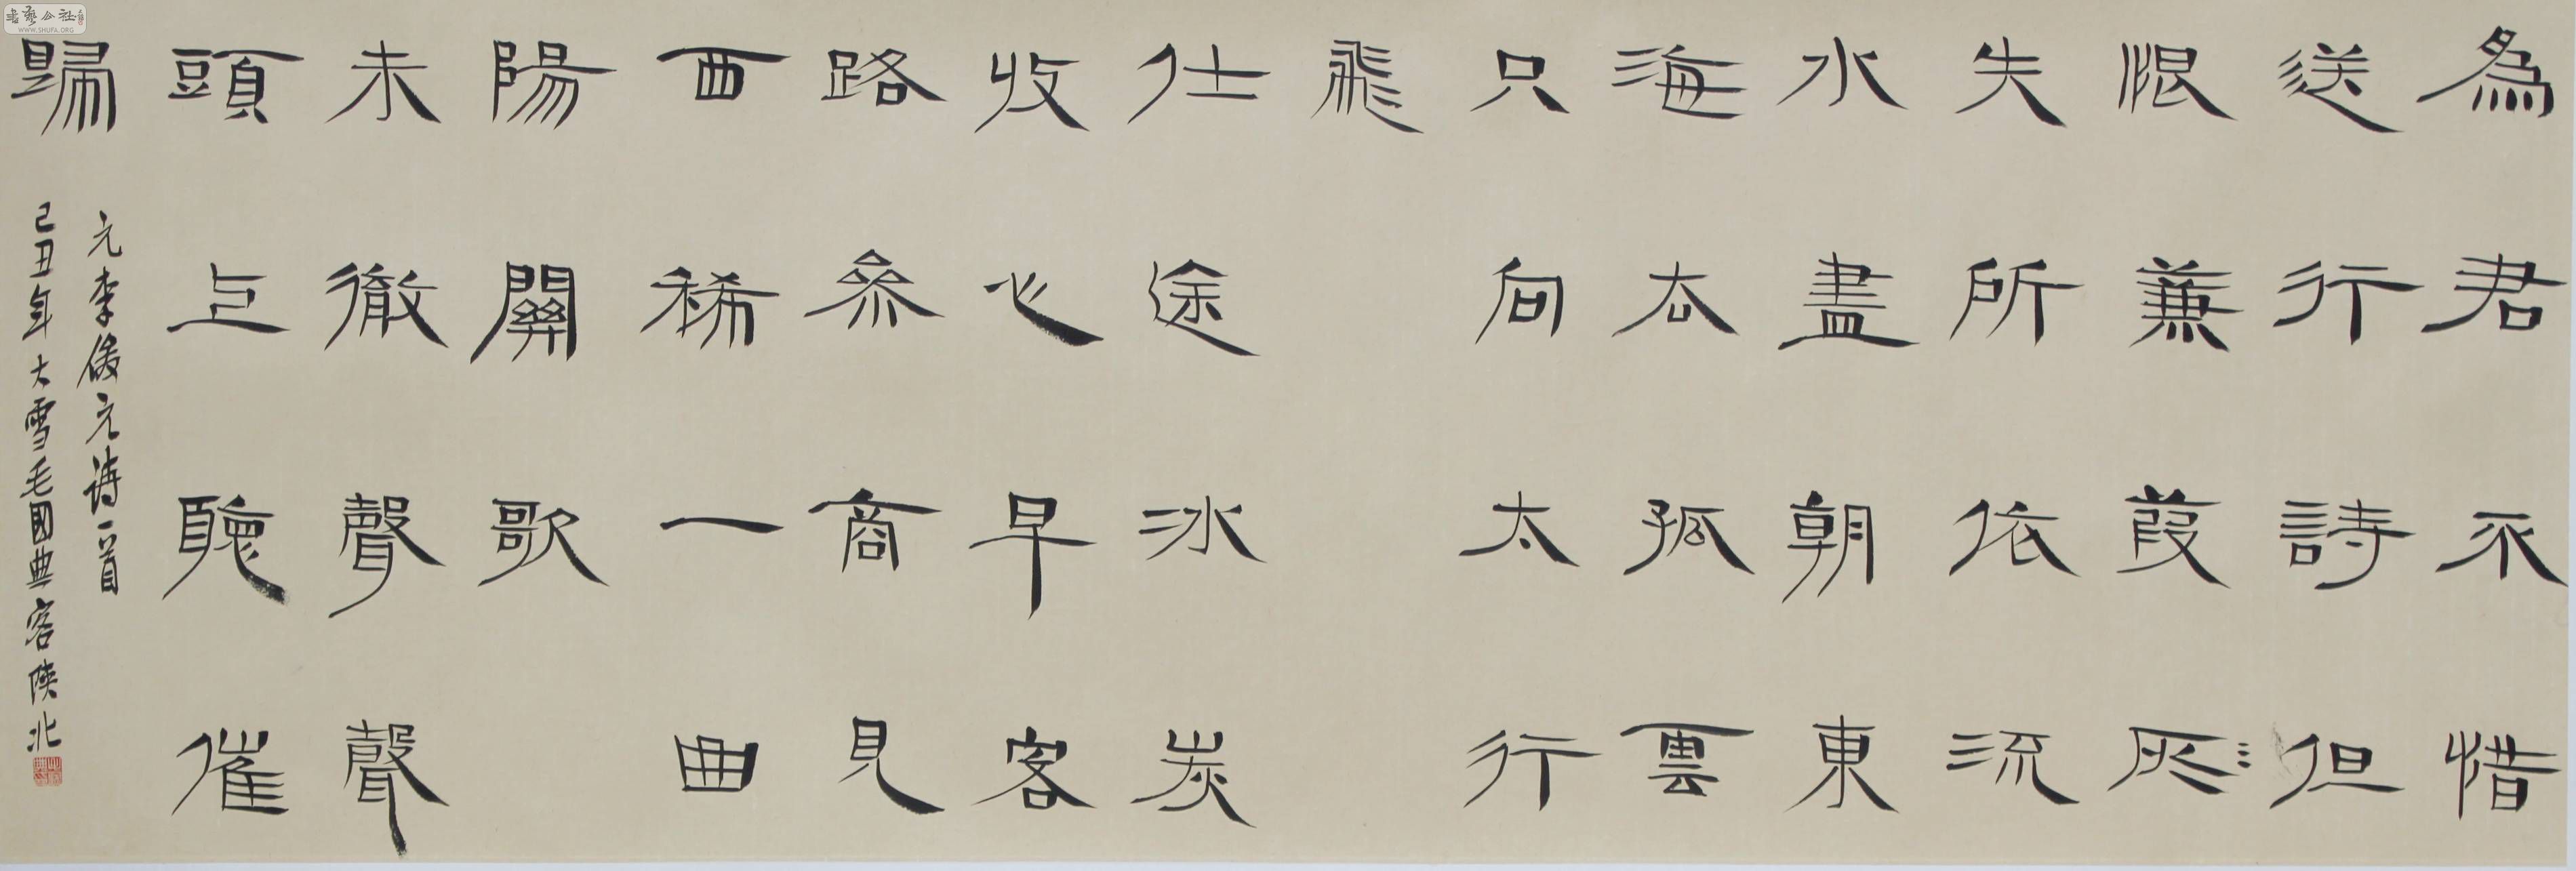 書藝公社
WWW.SHUFA.ORG
為君不惜
送行詩但
恨蒹葭灰
失所依流
水盡朝東
海去孤雲
只向太行
飛
仕途冰炭
收心早客
路參商見
面稀一曲
陽關歌
未徹聲聲
頭上聽催
歸
元李俊元詩一首
己丑年大雪毛國典客陝北